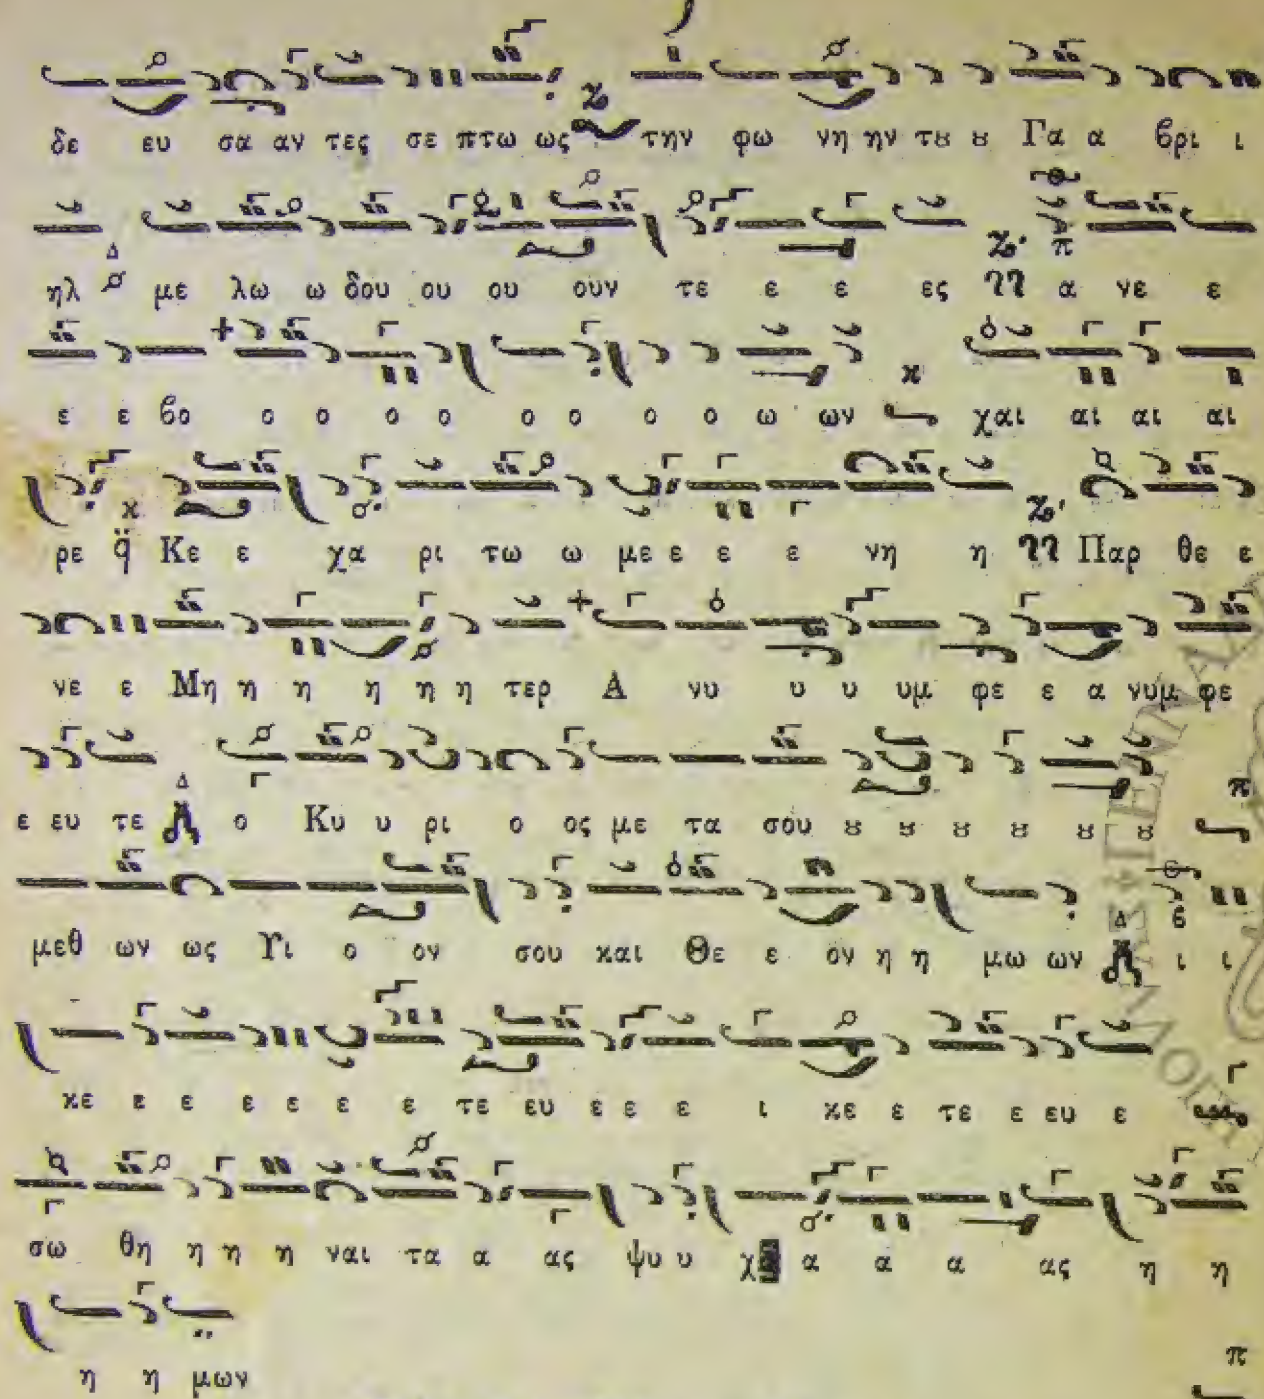 δε ευ σα αν τες σε πτω ως την φω νη ην τȣ ȣ Γα α βρι ι
ηλ με λω ω δου ου ου ουν τε ε ε ες α νε ε
ε ε βο ο ο ο ο ο ο ο ο ω ων χαι αι αι αι
ρε Κε ε χα ρι τω ω με ε ε ε νη η Παρ θε ε
νε ε Μη η η η η η τερ Α νυ υ υ υμ φε ε α νυμ φε
ε ευ τε ο Κυ υ ρι ο ος με τα σου ȣ ȣ ȣ ȣ ȣ ȣ
μεθ ων ως Υι ο ον σου και Θε ε ον η η μω ων ι ι
κε ε ε ε ε ε ε τε ευ ε ε ε ι κε ε τε ε ευ ε
σω θη η η η ναι τα α ας ψυ υ α α α ας η η
η η μων